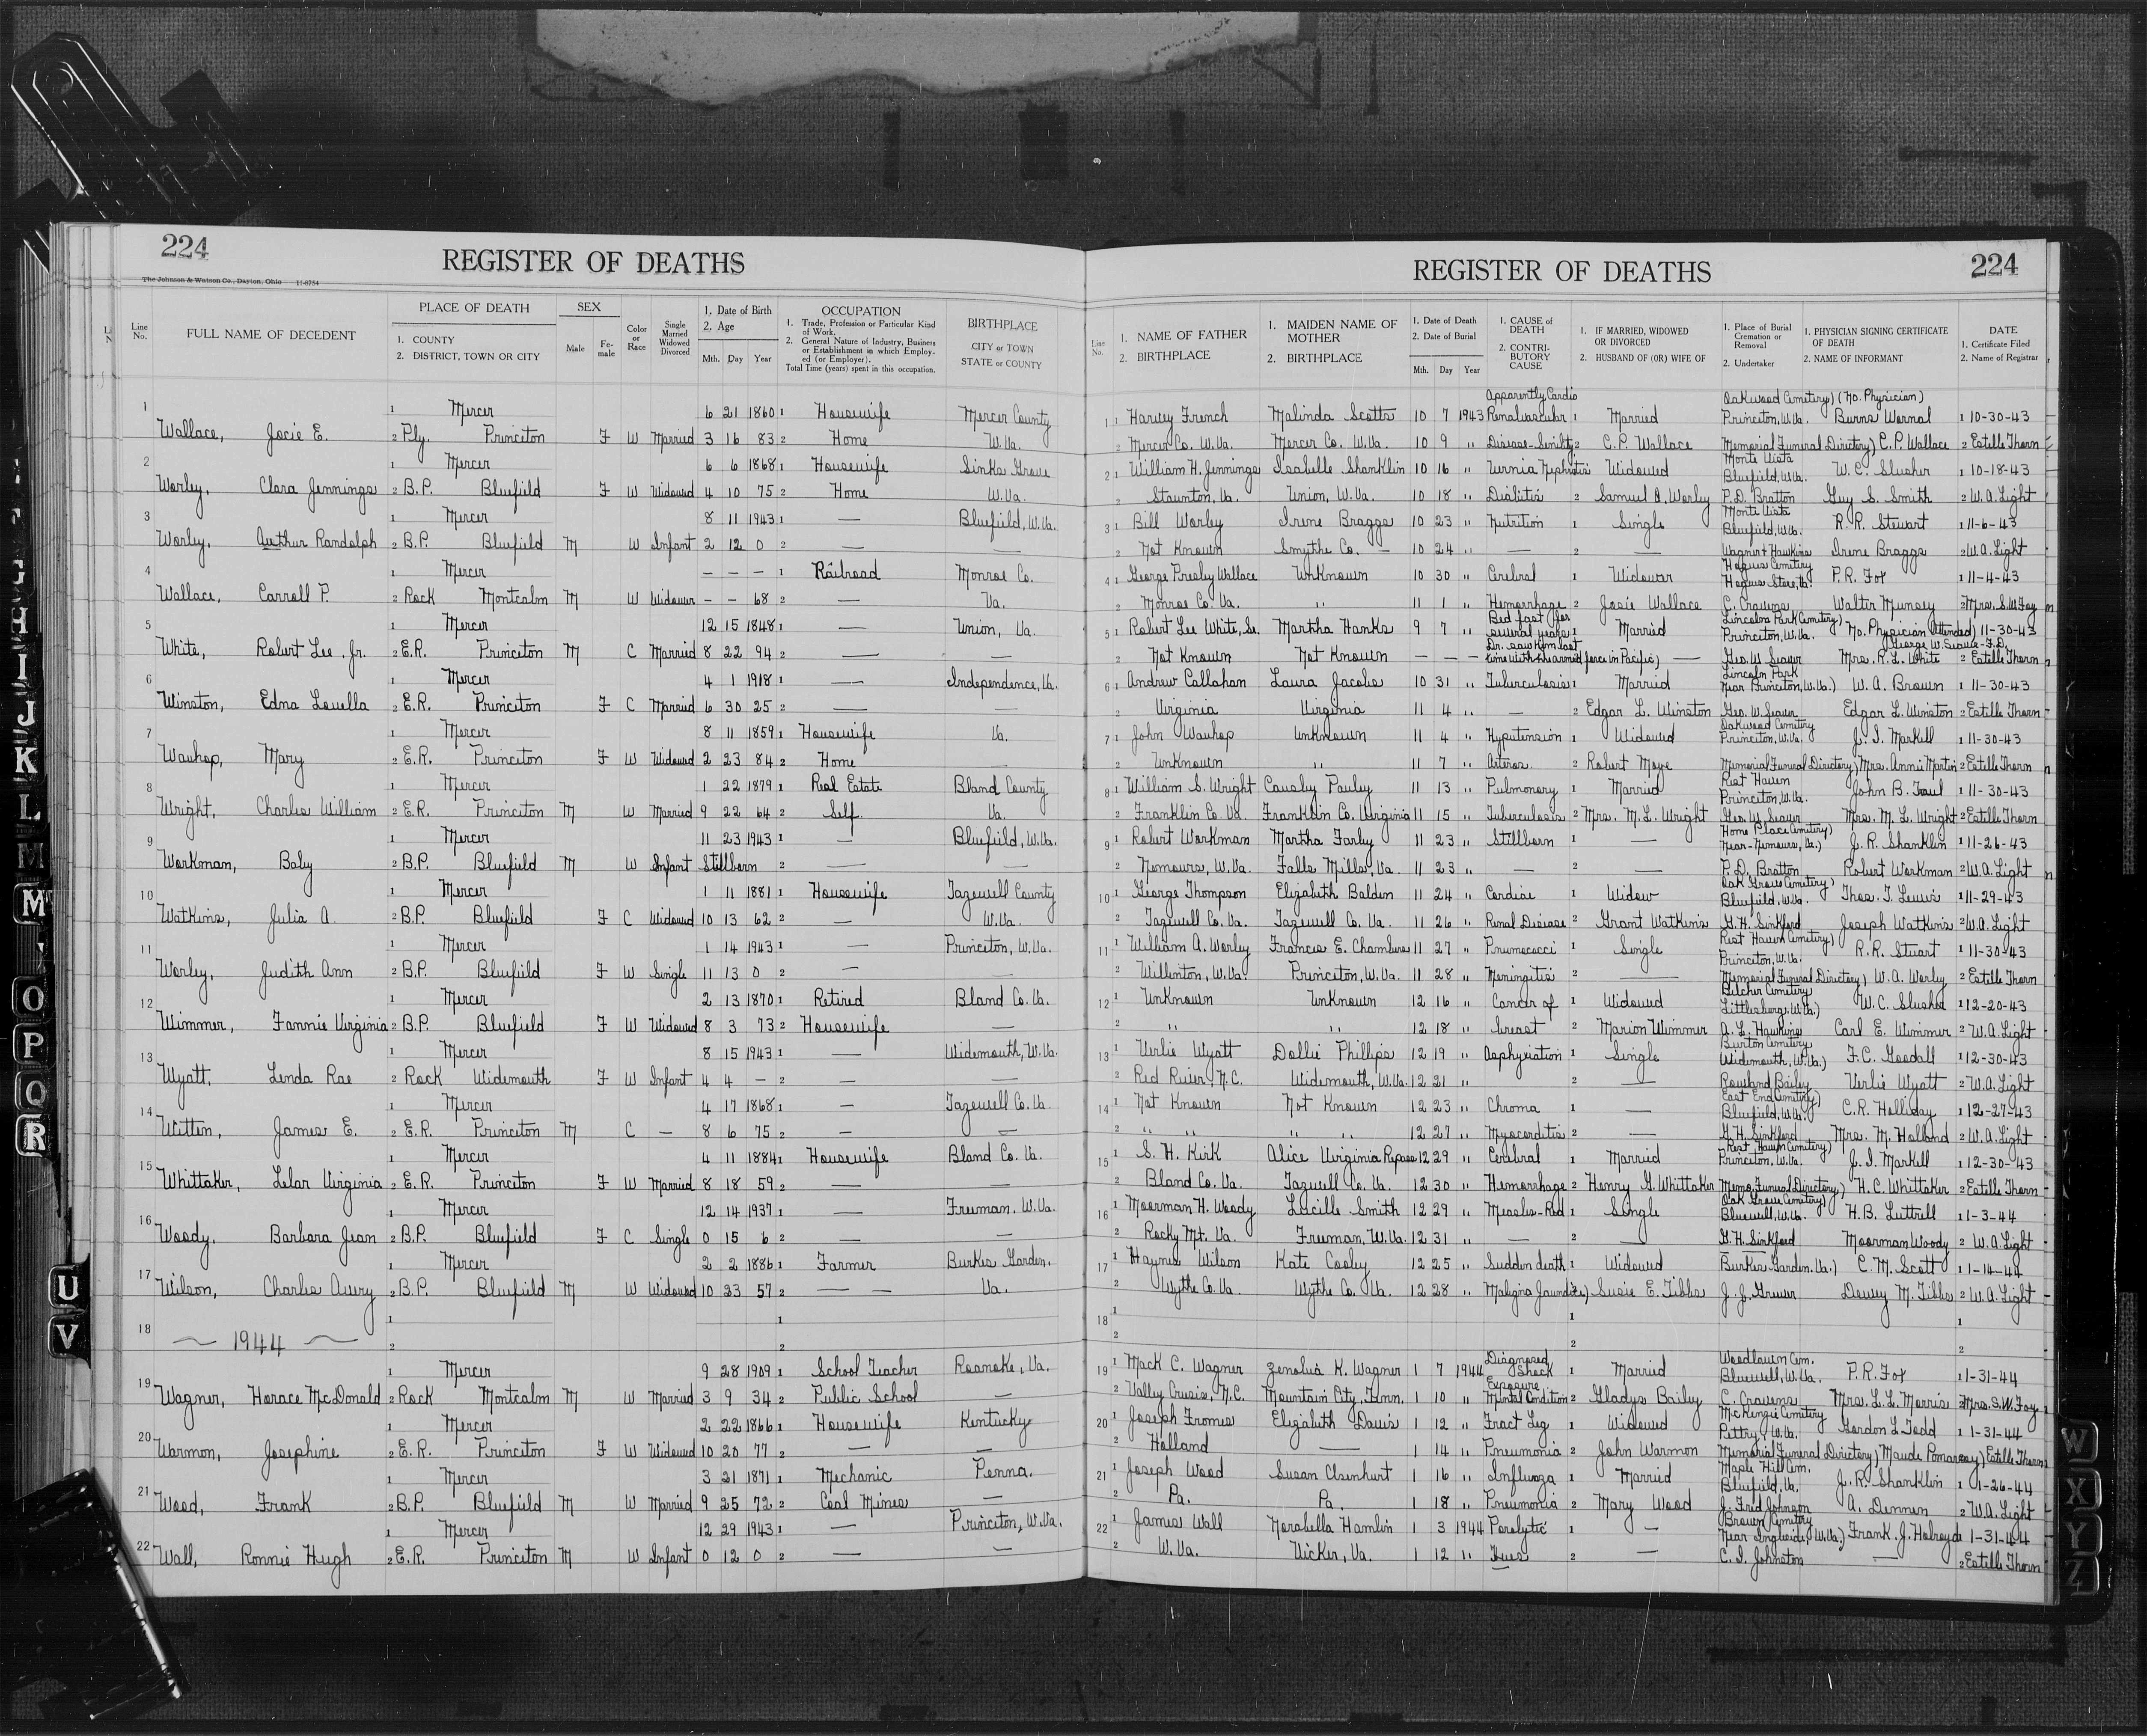 224
REGISTER OF DEATHS
The Johnson & Watson Co., Dayton, Ohio 11-6754
Line No.
FULL NAME OF DECEDENT
PLACE OF DEATH
1. COUNTY
2. DISTRICT, TOWN OR CITY
SEX
Male
Female
Color or Race
Single Married Widowed Divorced
1. Date of Birth
2. Age
Mth. Day Year
OCCUPATION
1. Trade, Profession or Particular Kind of Work.
2. General Nature of Industry, Business or Establishment in which Employed (or Employer).
Total Time (years) spent in this occupation.
BIRTHPLACE
CITY or TOWN
STATE or COUNTY
1 Mercer 6 21 1860 1 Housewife Mercer County
Wallace, Josie E. 2 Ply. Princeton F W Married 3 16 83 2 Home W.Va.
2 1 Mercer 6 6 1868 1 Housewife Sinks Grove
Worley, Clara Jennings 2 B.P. Bluefield F W Widowed 4 10 75 2 Home W.Va.
3 1 Mercer 8 11 1943 1 — Bluefield, W.Va.
Worley, Authur Randolph 2 B.P. Bluefield M W Infant 2 12 0 2 — —
4 1 Mercer — — — 1 Railroad Monroe Co.
Wallace, Carroll P. 2 Rock Montcalm M W Widower — — 68 2 — Va.
5 1 Mercer 12 15 1848 1 — Union, Va.
White, Robert Lee, Jr. 2 E.R. Princeton M C Married 8 22 94 2 — —
6 1 Mercer 4 1 1918 1 — Independence, Va.
Winston, Edna Louella 2 E.R. Princeton F C Married 6 30 25 2 — —
7 1 Mercer 8 11 1859 1 Housewife Va.
Wauhop, Mary 2 E.R. Princeton F W Widowed 2 23 84 2 Home —
8 1 Mercer 1 22 1879 1 Real Estate Bland County
Wright, Charles William 2 E.R. Princeton M W Married 9 22 64 2 Self Va.
9 1 Mercer 11 23 1943 1 — Bluefield, W.Va.
Workman, Baby 2 B.P. Bluefield M W Infant Stillborn 2 — —
10 1 Mercer 1 11 1881 1 Housewife Tazewell County
Watkins, Julia A. 2 B.P. Bluefield F C Widowed 10 13 62 2 — W.Va.
11 1 Mercer 1 14 1943 1 — Princeton, W.Va.
Worley, Judith Ann 2 B.P. Bluefield F W Single 11 13 0 2 — —
12 1 Mercer 2 13 1870 1 Retired Bland Co. Va.
Wimmer, Fannie Virginia 2 B.P. Bluefield F W Widowed 8 3 73 2 Housewife —
13 1 Mercer 8 15 1943 1 — Widemouth, W.Va.
Wyatt, Linda Rae 2 Rock Widemouth F W Infant 4 4 — 2 — —
14 1 Mercer 4 17 1868 1 — Tazewell Co. Va.
Witten, James E. 2 E.R. Princeton M C — 8 6 75 2 — —
15 1 Mercer 4 11 1884 1 Housewife Bland Co. Va.
Whittaker, Lelar Virginia 2 E.R. Princeton F W Married 8 18 59 2 — —
16 1 Mercer 12 14 1937 1 — Freeman, W.Va.
Woody, Barbara Jean 2 B.P. Bluefield F C Single 0 15 6 2 — —
17 1 Mercer 2 2 1886 1 Farmer Burkes Garden,
Wilson, Charles Avery 2 B.P. Bluefield M W Widowed 10 23 57 2 — — Va.
18 1 1
~ 1944 ~ 2 2
19 1 Mercer 9 28 1909 1 School Teacher Roanoke, Va.
Wagner, Horace McDonald 2 Rock Montcalm M W Married 3 9 34 2 Public School —
20 1 Mercer 2 22 1866 1 Housewife Kentucky
Warmon, Josephine 2 E.R. Princeton F W Widowed 10 20 77 2 — —
21 1 Mercer 3 21 1871 1 Mechanic Penna.
Wood, Frank 2 B.P. Bluefield M W Married 9 25 72 2 Coal Mines —
22 1 Mercer 12 29 1943 1 — Princeton, W.Va.
Wall, Ronnie Hugh 2 E.R. Princeton M W Infant 0 12 0 2 — —
REGISTER OF DEATHS
224
Line No.
1. NAME OF FATHER
2. BIRTHPLACE
1. MAIDEN NAME OF MOTHER
2. BIRTHPLACE
1. Date of Death
2. Date of Burial
Mth. Day Year
1. CAUSE of DEATH
2. CONTRIBUTORY CAUSE
1. IF MARRIED, WIDOWED OR DIVORCED
2. HUSBAND OF (OR) WIFE OF
1. Place of Burial Cremation or Removal
2. Undertaker
1. PHYSICIAN SIGNING CERTIFICATE OF DEATH
2. NAME OF INFORMANT
DATE
1. Certificate Filed
2. Name of Registrar
Apparently Cardio Oakwood Cemetery) (No. Physician)
1 1 Harvey French Malinda Scotts 10 7 1943 Renalvascular 1 Married Princeton, W.Va. Burns Wornal 1 10-30-43
2 Mercer Co. W.Va. Mercer Co. W.Va. 10 9 " Disease-Senility 2 C.P. Wallace Memorial Funeral Directory) C.P. Wallace 2 Estelle Thorn
Monte Vista
2 1 William H. Jennings Isabelle Shanklin 10 16 " Uernia Nephritis Widowed Bluefield, W.Va. W.C. Slusher 1 10-18-43
2 Staunton, Va. Union, W.Va. 10 18 " Dialitis 2 Samuel A. Worley P.D. Bratton Guy S. Smith 2 W.A. Light
Monte Vista
3 1 Bill Worley Irene Braggs 10 23 " Nutrition 1 Single Bluefield, W.Va. R.R. Stewart 1 11-6-43
2 Not Known Smythe Co. — 10 24 " — 2 — Wagner & Hawkins Irene Braggs 2 W.A. Light
Hogues Cemetery
4 1 George Presley Wallace Unknown 10 30 " Cerebral 1 Widower Hogues Store, Va. P.R. Fox 1 11-4-43
2 Monroe Co. Va. " 11 1 " Hemorrhage 2 Josie Wallace C. Cravens Walter Munsey 2 Mrs. S.W. Foy
Bed fast for Lincoln Park Cemetery)
5 1 Robert Lee White, Sr. Martha Hanks 9 7 " several years 1 Married Princeton, W.Va. No. Physician Attended) 11-30-43
Dr. saw him last
2 Not Known Not Known — — — time with the armed force in Pacific) — Geo. W. Seaver Mrs. R.L. White 2 Estelle Thorn
Lincoln Park
6 1 Andrew Callahan Laura Jacobs 10 31 " Tuberculosis 1 Married Near Princeton, W.Va.) W.A. Brown 1 11-30-43
2 Virginia Virginia 11 4 " — 2 Edgar L. Winston Geo. W. Seaver Edgar L. Winston 2 Estelle Thorn
Oakwood Cemetery
7 1 John Wauhop Unknown 11 4 " Hypertension 1 Widowed Princeton, W.Va. J.I. Markell 1 11-30-43
2 Unknown " 11 7 " Arteros 2 Robert Moye Memorial Funeral Directory) Mrs. Annie Martin 2 Estelle Thorn
Rest Haven
8 1 William S. Wright Causby Pauley 11 13 " Pulmonery 1 Married Princeton, W.Va. John B. Traul 1 11-30-43
2 Franklin Co. Va. Franklin Co. Virginia 11 15 " Tuberculosis 2 Mrs. M.L. Wright Geo. W. Seaver Mrs. M.L. Wright 2 Estelle Thorn
Home Place Cemetery)
9 1 Robert Workman Martha Farley 11 23 " Stillborn 1 — Near-Nemours, Va.) J.R. Shanklin 1 11-26-43
2 Nemours, W.Va. Falls Mills, Va. 11 23 " — 2 — P.D. Bratton Robert Workman 2 W.A. Light
Oak Grove Cemetery)
10 1 George Thompson Elizabeth Balden 11 24 " Cardiac 1 Widow Bluefield, W.Va. Thos. T. Lewis 1 11-29-43
2 Tazewell Co. Va. Tazewell Co. Va. 11 26 " Renal Disease 2 Grant Watkins G.H. Sinkford Joseph Watkins 2 W.A. Light
Rest Haven Cemetery)
11 1 William A. Worley Francis E. Chambers 11 27 " Pneumococci 1 Single Princeton, W.Va. R.R. Stuart 1 11-30-43
2 Willinton, W.Va. Princeton, W.Va. 11 28 " Meningitis 2 — Memorial Funeral Directory) W.A. Worley 2 Estelle Thorn
Belcher Cemetery
12 1 Unknown Unknown 12 16 " Cancer of 1 Widowed Littlesburg, W.Va.) W.C. Slusher 1 12-20-43
2 " " 12 18 " breast 2 Marion Wimmer A.L. Hawkins Carl E. Wimmer 2 W.A. Light
Burton Cemetery
13 1 Verlie Wyatt Dollie Phillips 12 19 " Asphyxiation 1 Single Widemouth, W.Va.) F.C. Goodall 1 12-30-43
2 Red River, N.C. Widemouth, W.Va. 12 21 " 2 — Rowland Bailey Verlie Wyatt 2 W.A. Light
East End Cemetery)
14 1 Not Known Not Known 12 23 " Chroma 1 — Bluefield, W.Va. C.R. Holliday 1 12-27-43
2 " " " " 12 27 " Myocarditis 2 — G.H. Sinkford Mrs. M. Holland 2 W.A. Light
Rest Haven Cemetery)
15 1 S.H. Kirk Alice Virginia Repass 12 29 " Cerebral 1 Married Princeton, W.Va. J.I. Markell 1 12-30-'43
2 Bland Co. Va. Tazwell Co. Va. 12 30 " Hemorrhage 2 Henry G. Whittaker Memo. Funeral Directory) H.C. Whittaker 2 Estelle Thorn
Oak Grove Cemetery)
16 1 Moorman H. Woody Lucille Smith 12 29 " Measles-Red 1 Single Bluewell, W.Va. H.B. Luttrell 1 1-3-44
2 Rocky Mt. Va. Freeman, W.Va. 12 31 " — 2 — G.H. Sinkford Moorman Woody 2 W.A. Light
17 1 Haynes Wilson Kate Cooley 12 25 " Sudden death 1 Widowed Burkes Garden, Va.) C.M. Scott 1 1-14-44
2 Wythe Co. Va. Wythe Co. Va. 12 28 " Maligna Jaundice) Susie E. Tibbs J.J. Grever Dewey M. Tibbs 2 W.A. Light
18 1 1 1
2 2 2
Diagnosed Woodlawn Cem.
19 1 Mack C. Wagner Zenolia K. Wagner 1 7 1944 Shock 1 Married Bluewell, W.Va. P.R. Fox 1 1-31-44
Exposure
2 Valley Crusis, N.C. Mountain City, Tenn. 1 10 " Mental Condition 2 Gladys Bailey C. Cravens Mrs. L.L. Morris 2 Mrs. S.W. Foy
McKenzie Cemetery
20 1 Joseph Fromes Elizabeth Davis 1 12 " Fract Leg 1 Widowed Pettry, W.Va. Gordon L. Todd 1 1-31-44
2 Holland — 1 14 " Pneumonia 2 John Warmon Memorial Funeral Directory) Maude Pomaroay) Estelle Thorn
Maple Hill Cem.
21 1 Joseph Wood Susan Isenhurt 1 16 " Influnza 1 Married Bluefield, Va. J.R. Shanklin 1 1-26-44
2 Pa. Pa. 1 18 " Pneumonia 2 Mary Wood J. Fred Johnson A. Dennen 2 W.A. Light
Brown Cemetery
22 1 James Wall Norabella Hamlin 1 3 1944 Paralytic 1 — Near Ingleside, W.Va.) Frank J. Holroyd 1 1-31-44
2 W.Va. Vicker, Va. 1 12 " Ileus 2 — C.I. Johnston — 2 Estelle Thorn
H
I
J
K
L
M
M
O
P
Q
R
U
V
W
X
Y
Z